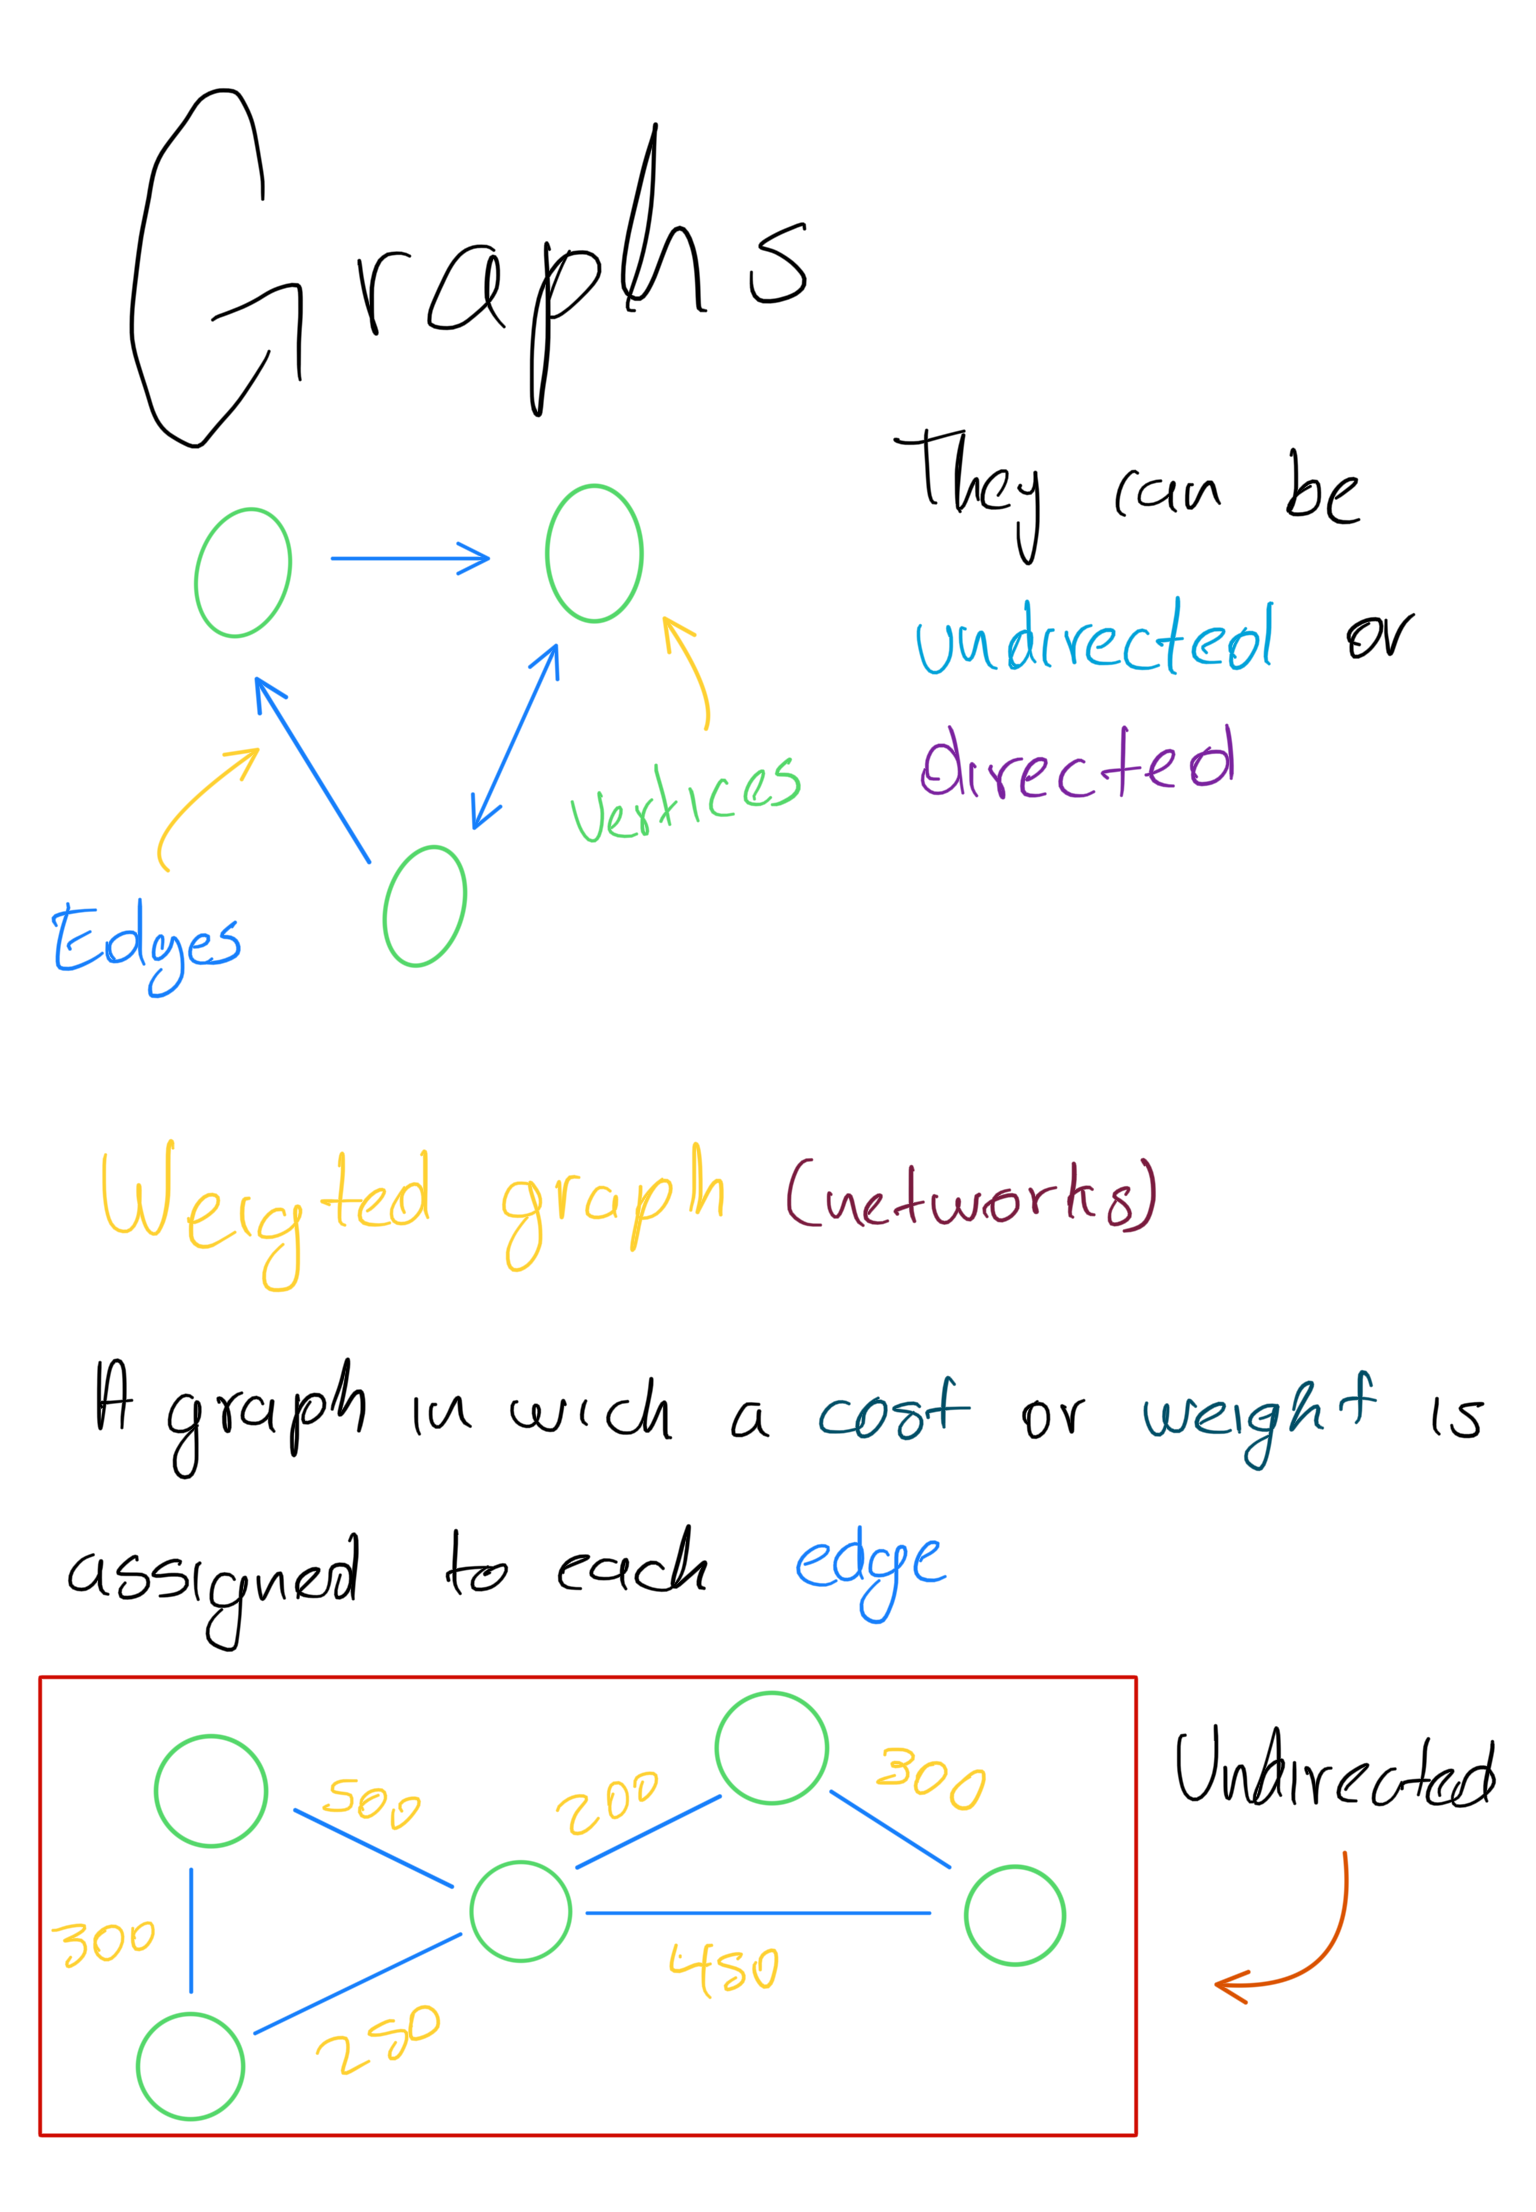 Graphs
They can be
undirected or
directed
vertices
Edges
Weigted graph (networks)
A graph in wich a cost or weight is
assigned to each edge
500
200
300
Undirected
300
450
250